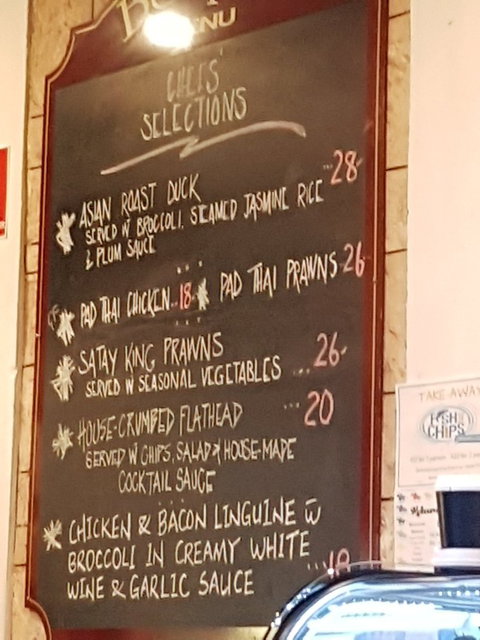 MENU
CHEFS'
SELECTIONS
ASIAN ROAST DUCK ...28-
SERVED W BROCCOLI, STEAMED JASMINE RICE
& PLUM SAUCE
PAD THAI CHICKEN..18- PAD THAI PRAWNS-26-
SATAY KING PRAWNS ...26-
SERVED W SEASONAL VEGETABLES
HOUSE-CRUMBED FLATHEAD ...20
SERVED W CHIPS, SALAD & HOUSE-MADE
COCKTAIL SAUCE
CHICKEN & BACON LINGUINE W
BROCCOLI IN CREAMY WHITE
WINE & GARLIC SAUCE
TAKE AWAY
FISH
CHIPS